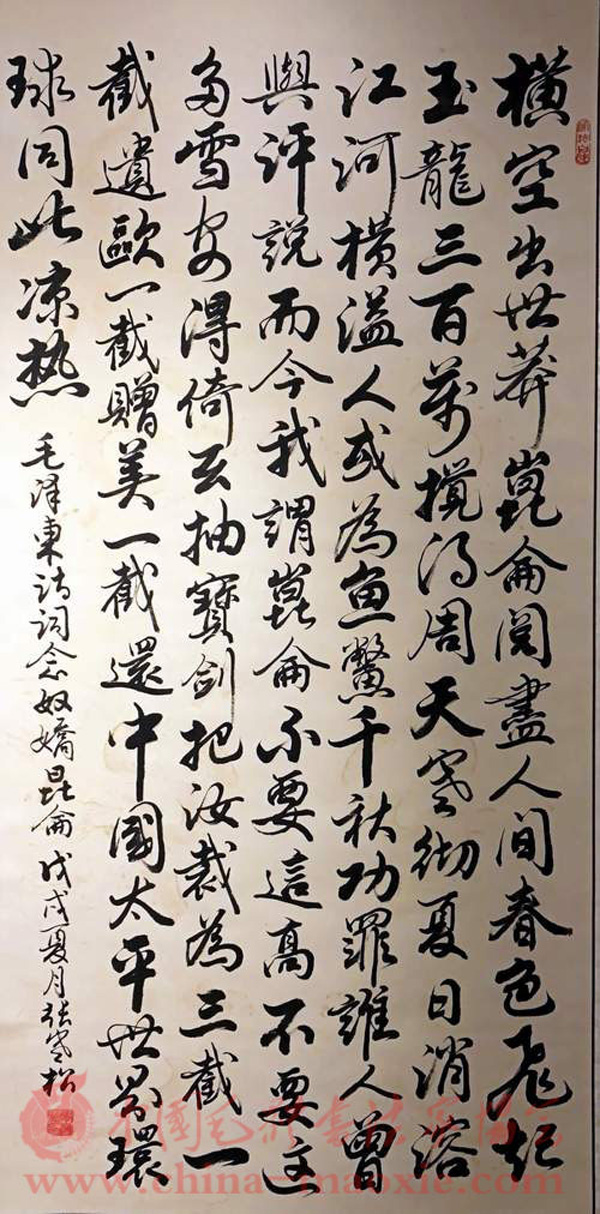 横空出世莽崑侖阅盡人间春色飛起
玉龍三百萬攪得周天寒彻夏日消溶
江河横溢人或為鱼鱉千秋功罪誰人曾
與評説而今我謂崑侖不要這高不要这
多雪安得倚天抽寶剑把汝裁為三截一
截遺歐一截贈美一截還中國太平世界環
球同此凉热
毛泽東诗词念奴嬌昆侖 戊戌夏月张寒松
www.china-maoxie.com